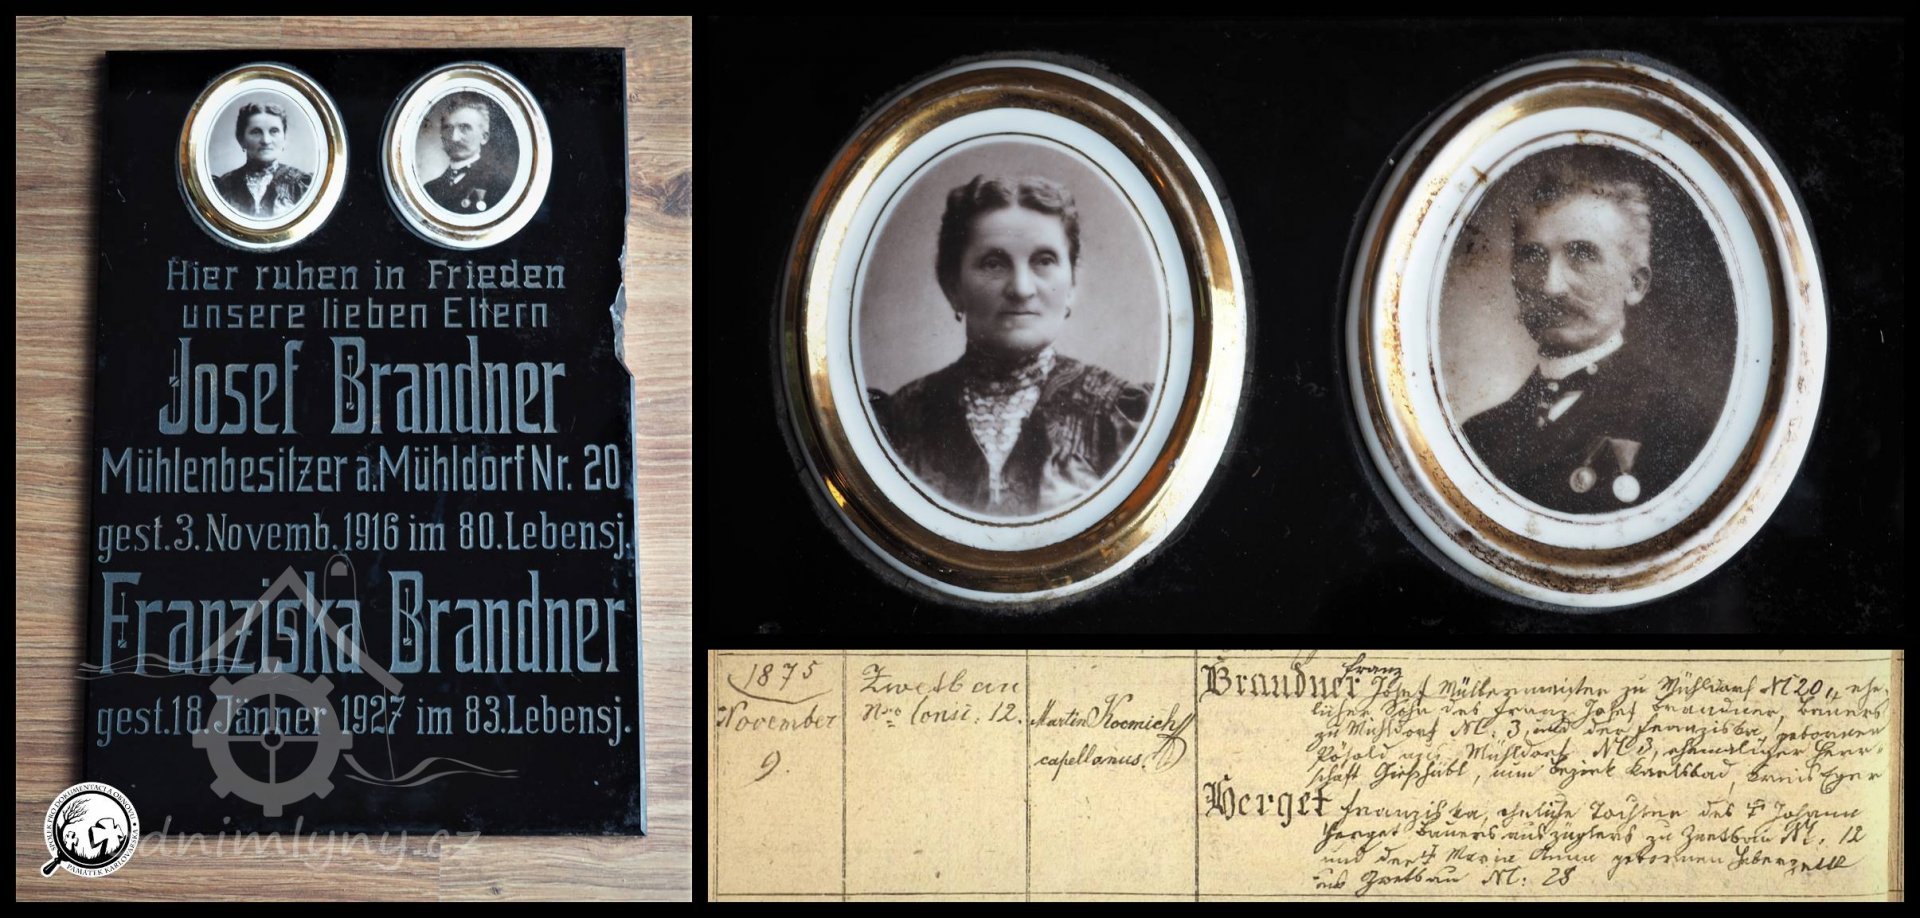 Hier ruhen in Frieden
unsere lieben Eltern
Josef Brandner
Mühlenbesitzer a. Mühldorf Nr. 20
gest. 3. Novemb. 1916 im 80. Lebensj.
Franziska Brandner
gest. 18. Jänner 1927 im 83. Lebensj.
dnimlyny.cz
SPOLEK PRO DOKUMENTACI A OBNOVU
PAMÁTEK KARLOVARSKA
1875
November
9.
Zwetbau
Nro Consc. 12.
Martin
capellanus.
Franz
Brandner Josef Müllermeister zu Mühldorf N 20, ehe-
licher Sohn des Franz Josef Brandner, Bauers
zu Mühldorf N. 3, und der Franziska, geborener
aus Mühldorf N 3, ehemaliger Herr-
schaft Gießhübl, nun Bezirk Karlsbad, Kreis Eger
Herget Franziska, eheliche Tochter des † Johann
Herget Bauersauszüglers zu Zwetbau N. 12
und der † Maria Anna geborenen
aus Zwetbau N. 28